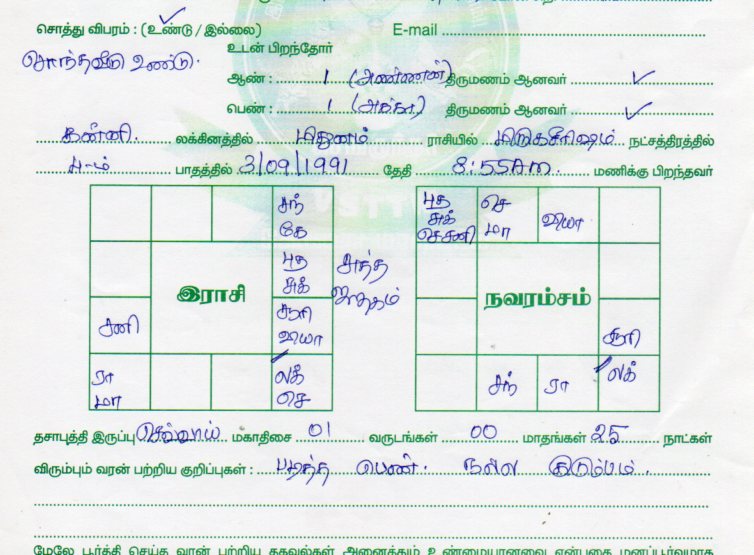 சொத்து விபரம் : (உண்டு / இல்லை) E-mail
சொந்தவீடு உண்டு.
உடன் பிறந்தோர்
ஆண் : 1 (அண்ணன்) திருமணம் ஆனவர் ✓
பெண் : 1 (அக்கா) திருமணம் ஆனவர் ✓
கன்னி. லக்கினத்தில் மிதுனம் ராசியில் மிருகசீரிஷம் நட்சத்திரத்தில்
4-ம் பாதத்தில் 3/09/1991 தேதி 8:55Am. மணிக்கு பிறந்தவர்
சந்
கே
புத
சுக்
இராசி
சூரி
வியா
சனி
ரா
மா
லக்
செ
சுத்த
ஜாதகம்
புத
சுக்
செ
மா
வியா
நவாம்சம்
சூரி
சந்
ரா
லக்
தசாபுத்தி இருப்பு செவ்வாய் மகாதிசை 01 வருடங்கள் 00 மாதங்கள் 25 நாட்கள்
விரும்பும் வரன் பற்றிய குறிப்புகள் : படித்த பெண். நல்ல குடும்பம்.
மேலே பூர்த்தி செய்த வரன் பற்றிய தகவல்கள் அனைத்தும் உண்மையானவை என்பதை மனப்பூர்வமாக